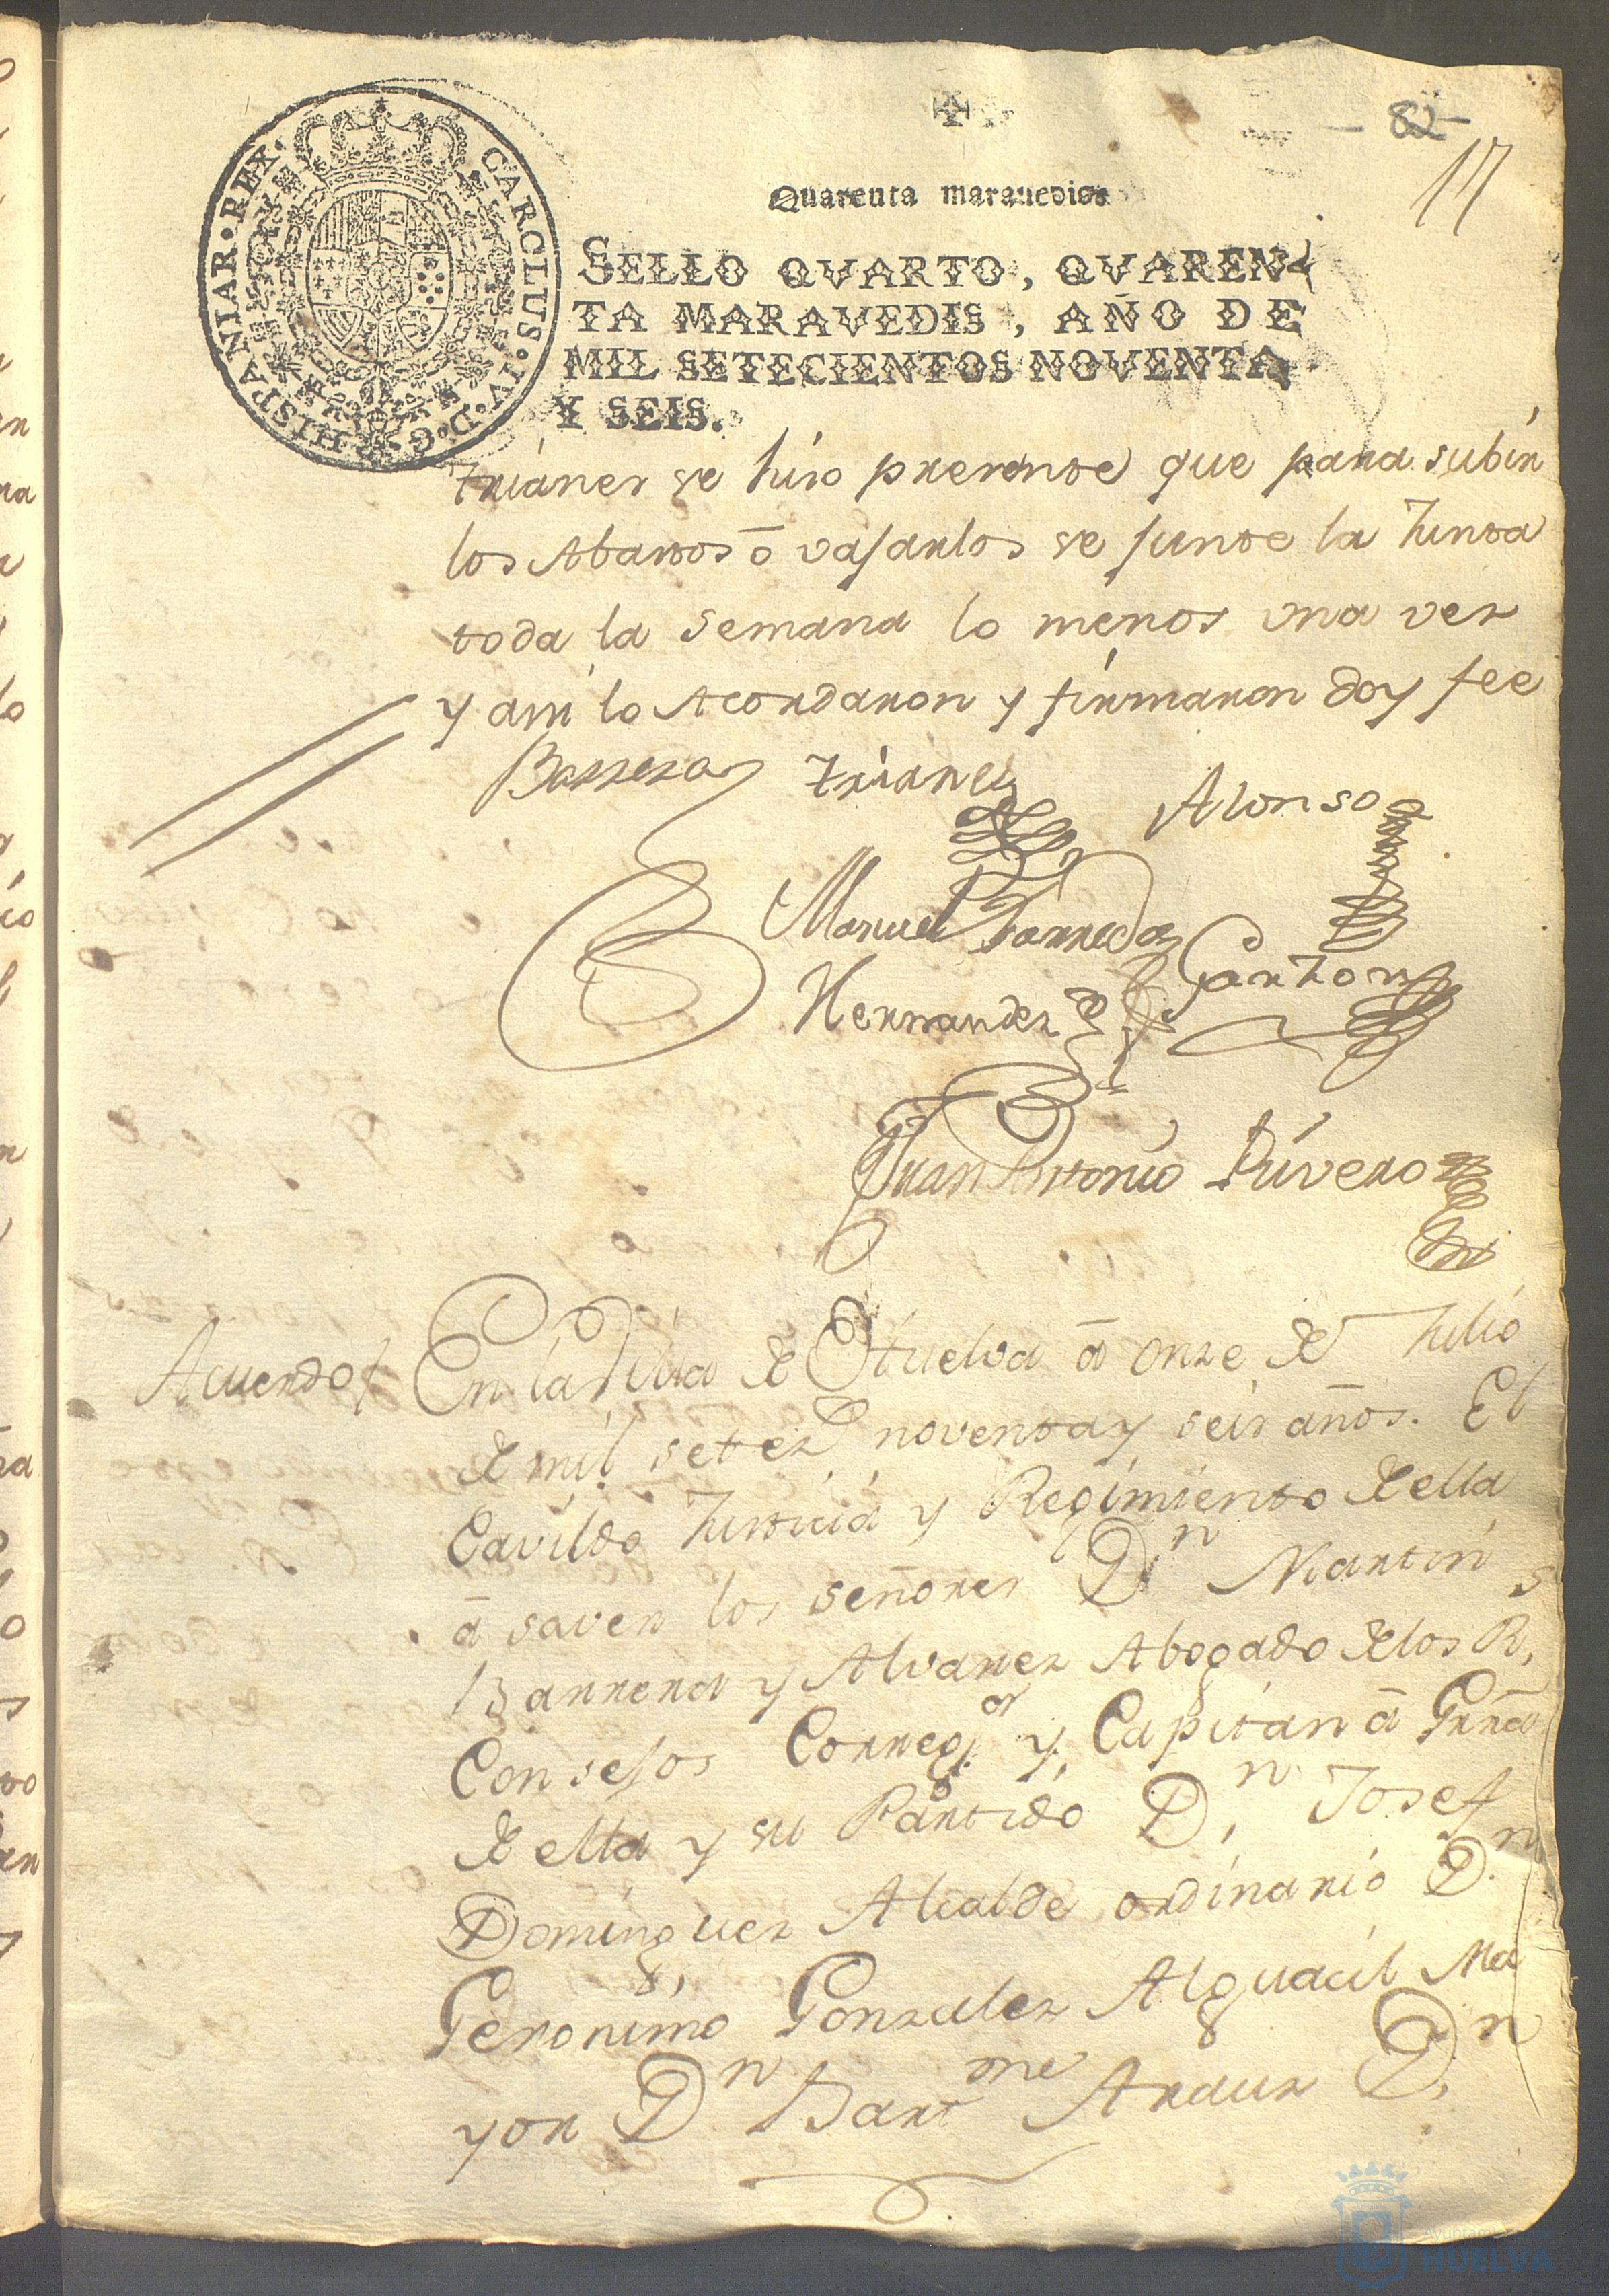 - 82 -
17
Quarenta maravedis
CAROLUS·IV·D·G·HISPANIAR·REX·
SELLO QVARTO, QVAREN-
TA MARAVEDIS, AÑO DE
MIL SETECIENTOS NOVENTA
Y SEIS.
trianes se hiso presente que para subir
los Abastos ó vajarlos se junte la Junta
toda la semana lo menos una vez
y assi lo Acordaron y firmaron doy fee
Barrera Trianes Alonso
Manuel Garzon
Hernandez
Juan Antonio Rivero
Acuerdo En la Villa de Huelva á onze de Julio
de mil setez noventa y seis años. El
Cavildo Justicia y Regimiento de ella
á saver los señores Dn Martin
Barrera y Alvarez Abogado de los Rs
Consejos Corregor y Capitan á Grra
de ella y su Partido Dn Josef
Dominguez Alcalde ordinario Dn
Geronimo Gonzalez Alguacil Ma
yor Dn Bartme Arauz Dn
HUELVA